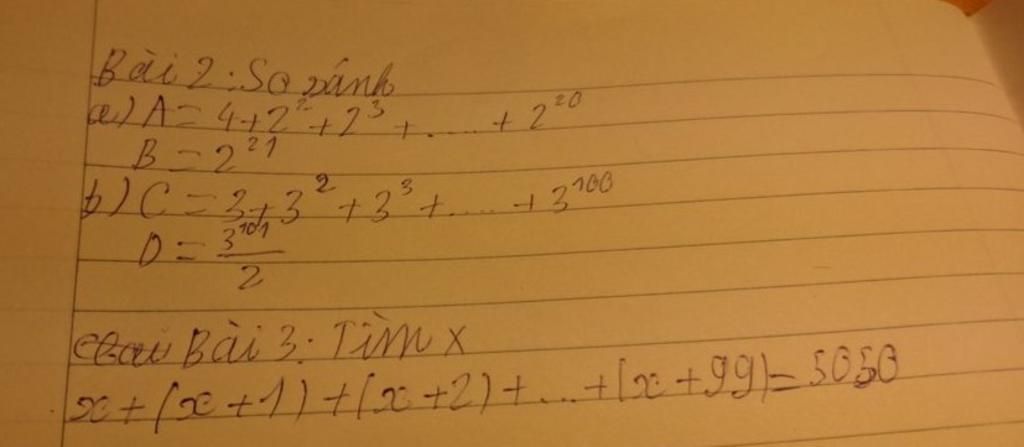 Bài 2: So sánh
a) A = 4 + 2² + 2³ + ..... + 2²⁰
B = 2²¹
b) C = 3 + 3² + 3³ + ..... + 3¹⁰⁰
D = 3¹⁰¹/2
Bài 3: Tìm x
x + (x + 1) + (x + 2) + ... + (x + 99) = 5050